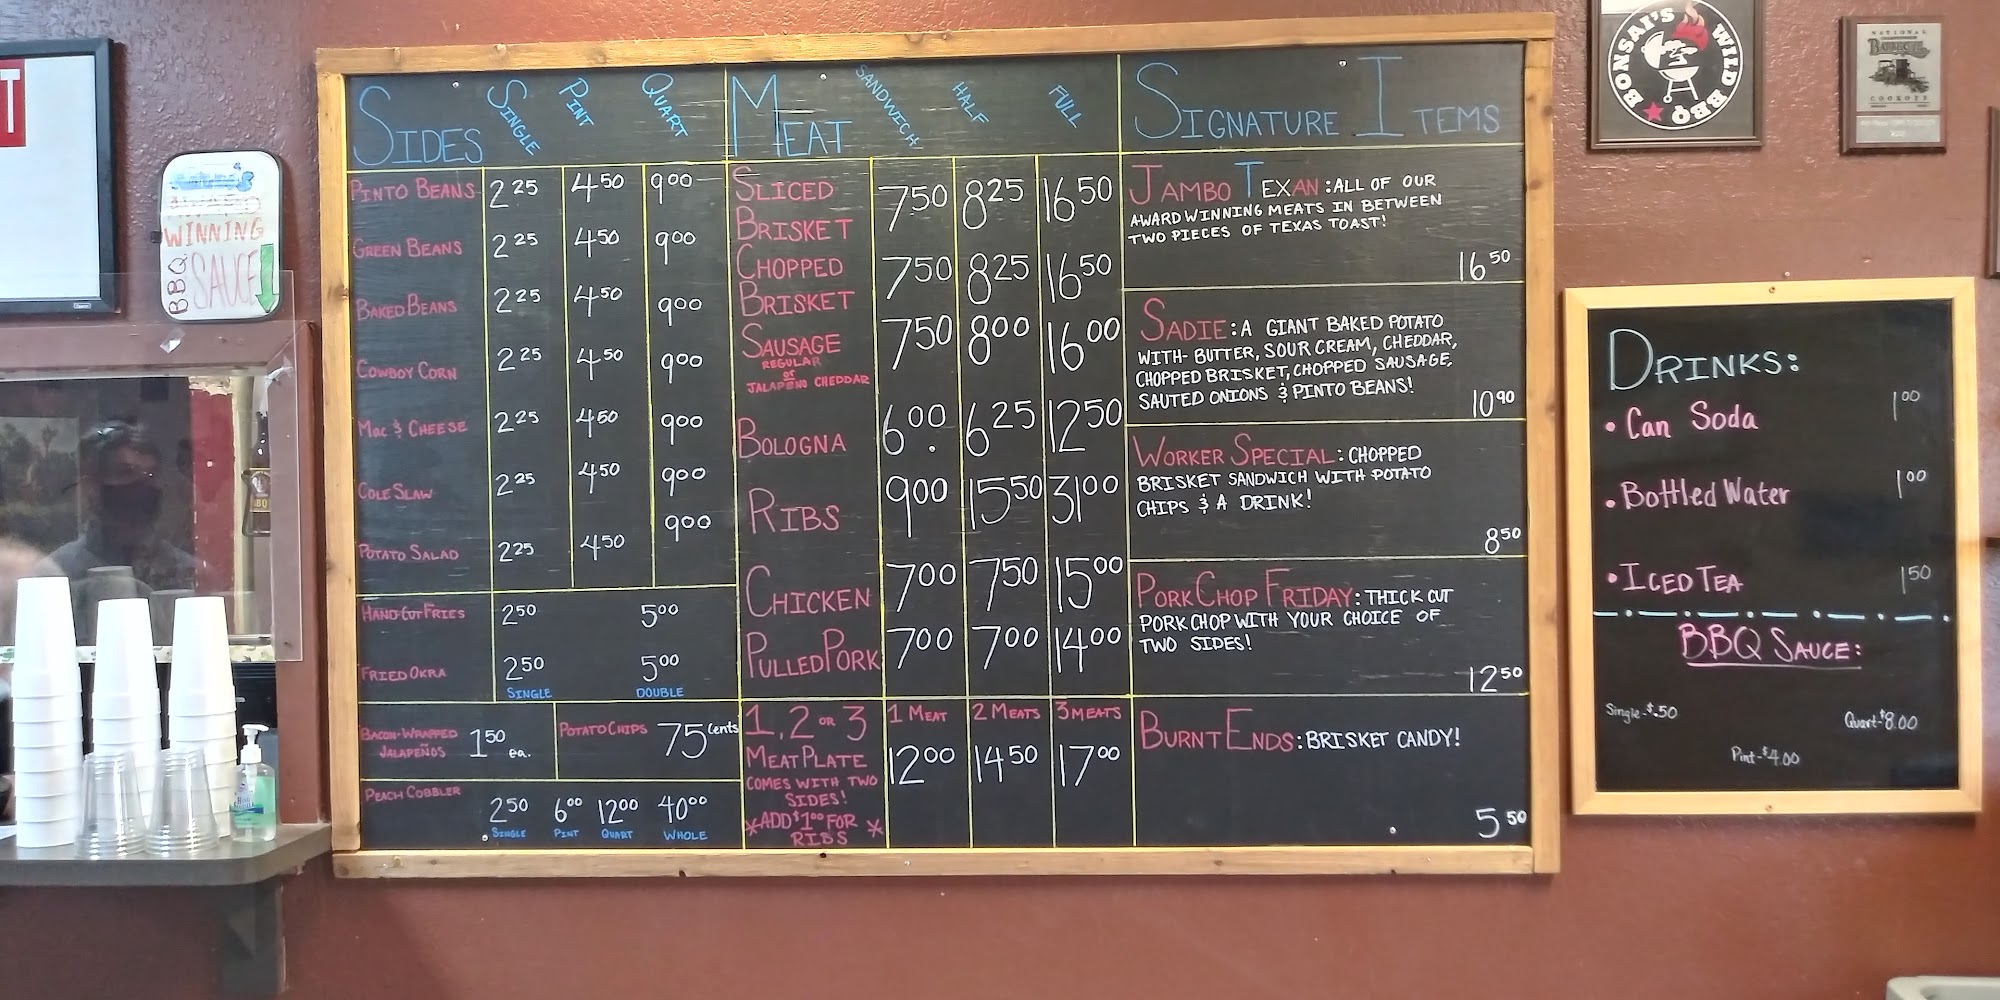 T
WINNING
BBQ SAUCE
SIDES SINGLE PINT QUART
PINTO BEANS 2 25 4 50 9 00
GREEN BEANS 2 25 4 50 9 00
BAKED BEANS 2 25 4 50 9 00
COWBOY CORN 2 25 4 50 9 00
MAC & CHEESE 2 25 4 50 9 00
COLE SLAW 2 25 4 50 9 00
POTATO SALAD 2 25 4 50 9 00
HAND-CUT FRIES 2 50 5 00
FRIED OKRA 2 50 5 00
SINGLE DOUBLE
BACON-WRAPPED
JALAPEÑOS 1 50 ea.
POTATO CHIPS 75 Cents
PEACH COBBLER
2 50 6 00 12 00 40 00
SINGLE PINT QUART WHOLE
MEAT SANDWICH HALF FULL
SLICED
BRISKET 7 50 8 25 16 50
CHOPPED
BRISKET 7 50 8 25 16 50
SAUSAGE 7 50 8 00 16 00
REGULAR
or
JALAPEÑO CHEDDAR
BOLOGNA 6 00 6 25 12 50
RIBS 9 00 15 50 31 00
CHICKEN 7 00 7 50 15 00
PULLED PORK 7 00 7 00 14 00
1, 2 OR 3 1 MEAT 2 MEATS 3 MEATS
MEAT PLATE 12 00 14 50 17 00
COMES WITH TWO
SIDES!
*ADD $1 00 FOR *
RIBS
SIGNATURE ITEMS
JAMBO TEXAN: ALL OF OUR
AWARD WINNING MEATS IN BETWEEN
TWO PIECES OF TEXAS TOAST!
16 50
SADIE: A GIANT BAKED POTATO
WITH- BUTTER, SOUR CREAM, CHEDDAR,
CHOPPED BRISKET, CHOPPED SAUSAGE,
SAUTED ONIONS & PINTO BEANS!
10 90
WORKER SPECIAL: CHOPPED
BRISKET SANDWICH WITH POTATO
CHIPS & A DRINK!
8 50
PORK CHOP FRIDAY: THICK CUT
PORK CHOP WITH YOUR CHOICE OF
TWO SIDES!
12 50
BURNT ENDS: BRISKET CANDY!
5 50
BONSAI'S WILD BBQ
NATIONAL
BARBECUE
COOKOFF
DRINKS:
• Can Soda 1 00
• Bottled Water 1 00
• ICED TEA 1 50
BBQ SAUCE:
Single-$.50
Quart-$8.00
Pint-$4.00